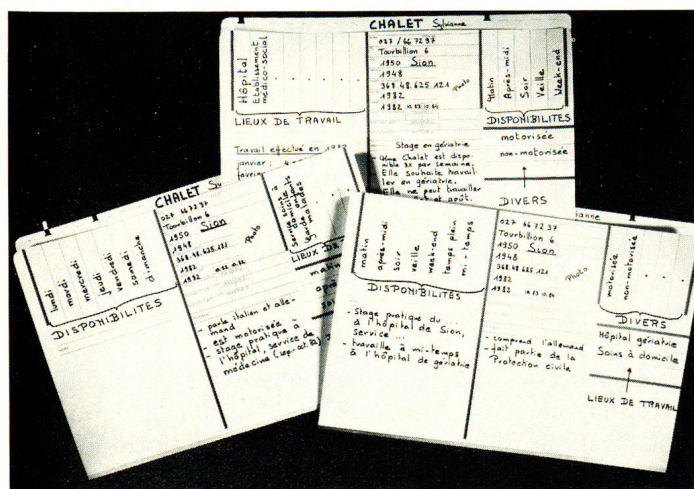 CHALET Sylvianne
Hôpital
Etablissement
médico-social
LIEUX DE TRAVAIL
Travail effectué en
janvier :
027 / 66 72 37
Tourbillon 6
1950 Sion
1948
368.48.625.121
1982
1982
Photo
Stage en gériatrie
Mme Chalet est dispo-
nible 3x par semaine.
Elle souhaite travail-
ler en gériatrie.
Elle ne peut travailler
et août.
Matin
Après-midi
Soir
Veille
Week-end
DISPONIBILITES
motorisée
non-motorisée
DIVERS
CHALET
lundi
mardi
mercredi
jeudi
vendredi
samedi
dimanche
DISPONIBILITES
027 66 72 37
Tourbillon 6
1950 Sion
1948
368.48.625.121
1982
1982
Photo
parle italien et alle-
mand
est motorisée
- stage pratique à
l'hôpital, service de
médecine
LIEUX DE
matin
matin
après-midi
soir
veille
week-end
temps plein
mi-temps
DISPONIBILITES
- Stage pratique du ...
à l'hôpital de Sion,
service ...
- travaille à mi-temps
à l'hôpital de gériatrie
027 66 72 37
Tourbillon 6
1950 Sion
1948
368.48.625.121
1982
1982
Photo
- comprend l'allemand
- fait partie de la
Protection civile
motorisée
non-motorisée
DIVERS
Hôpital gériatrie
Soins à domicile
LIEUX DE TRAVAIL